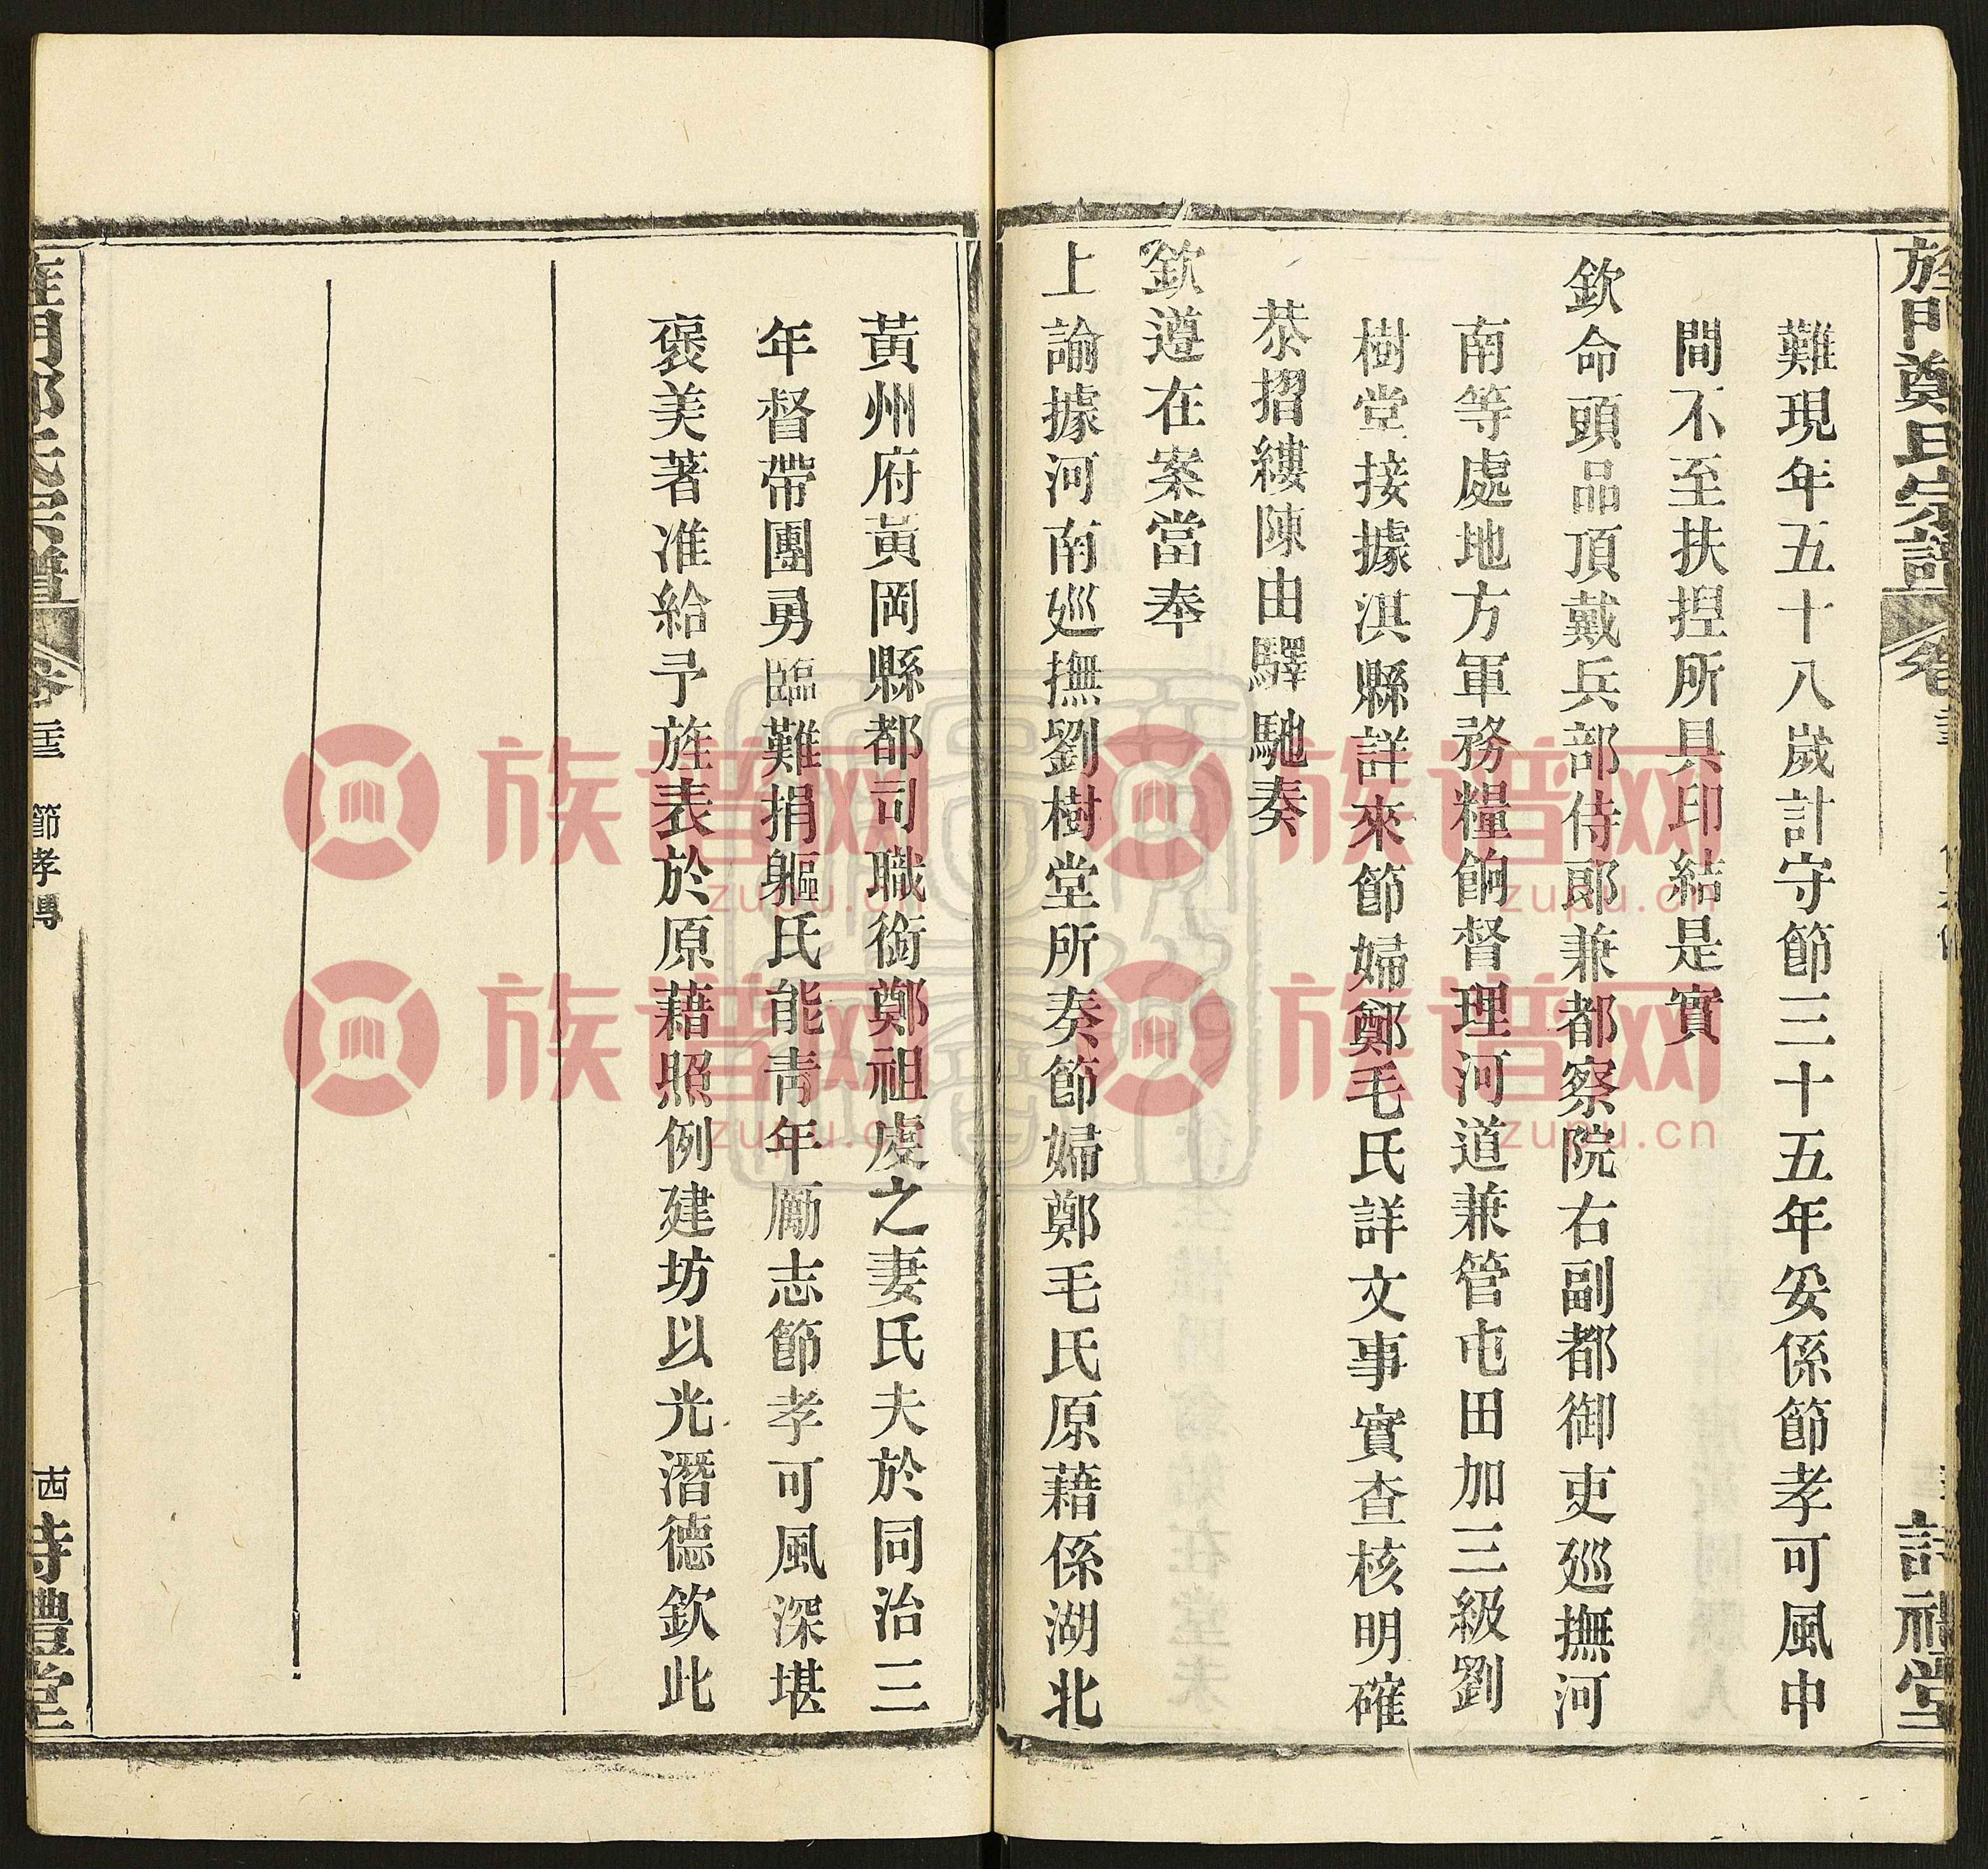 旌門奠氏宗譜
難現年五十八歲計守節三十五年妥係節孝可風中
間不至扶揑所具印結是實
欽命頭品頂戴兵部侍郎兼都察院右副都御吏廵撫河
南等處地方軍務糧餉督理河道兼管屯田加三級劉
樹堂接據淇縣詳來節婦鄭毛氏詳文事實查核明確
恭摺縷陳由驛馳奏
欽遵在案當奉
上諭據河南廵撫劉樹堂所奏節婦鄭毛氏原藉係湖北
黃州府黃岡縣都司職銜鄭祖虔之妻氏夫於同治三
年督帶團勇臨難捐軀氏能青年勵志節孝可風深堪
褒美著准給予旌表於原藉照例建坊以光潛德欽此
節孝傳
詩禮堂
族谱网
zupu.cn
族谱网
zupu.cn
族谱网
zupu.cn
族谱网
zupu.cn